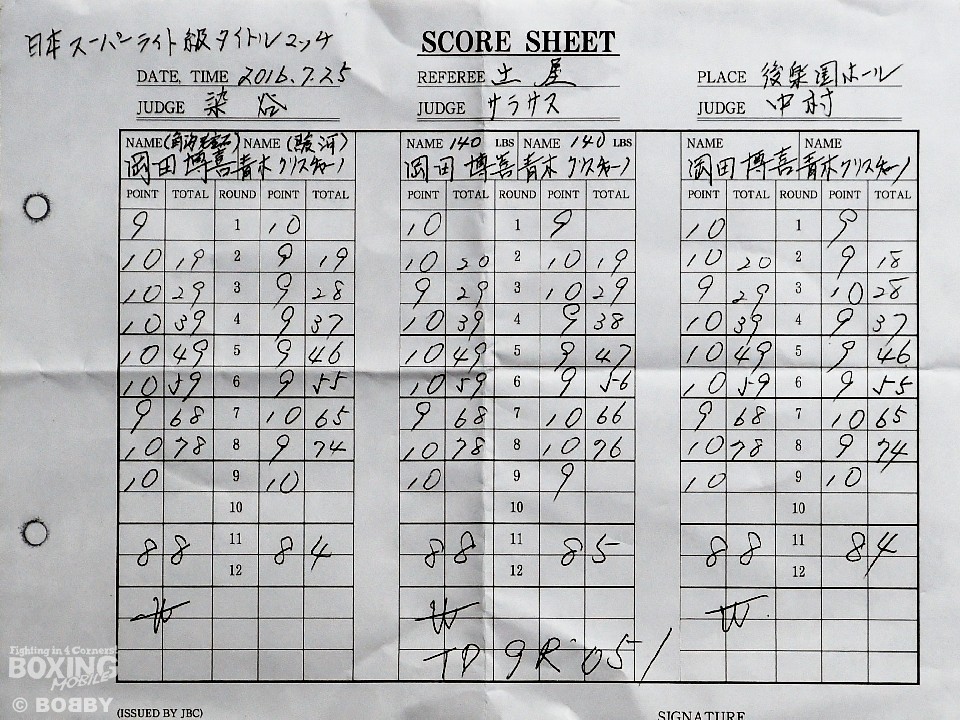 日本スーパーライト級タイトルマッチ
SCORE SHEET
DATE, TIME 2016.7.25 REFEREE 土屋 PLACE 後楽園ホール
JUDGE 染谷 JUDGE サラサス JUDGE 中村
NAME (角海老宝石) NAME (駿河) NAME 140 LBS NAME 140 LBS NAME NAME
岡田博喜 青木クリスチャーノ 岡田博喜 青木クリスチャーノ 岡田博喜 青木クリスチャーノ
POINT TOTAL ROUND POINT TOTAL POINT TOTAL ROUND POINT TOTAL POINT TOTAL ROUND POINT TOTAL
9 1 10 10 1 9 10 1 9
10 19 2 9 19 10 20 2 10 19 10 20 2 9 18
10 29 3 9 28 9 29 3 10 29 9 29 3 10 28
10 39 4 9 37 10 39 4 9 38 10 39 4 9 37
10 49 5 9 46 10 49 5 9 47 10 49 5 9 46
10 59 6 9 55 10 59 6 9 56 10 59 6 9 55
9 68 7 10 65 9 68 7 10 66 9 68 7 10 65
10 78 8 9 74 10 78 8 10 76 10 78 8 9 74
10 9 10 10 9 9 10 9 10
10 10 10
88 11 84 88 11 85 88 11 84
12 12 12
W W W
TD 9R 051
Fighting in 4 Corners!
BOXING
MOBILE
© BOBBY
(ISSUED BY JBC) SIGNATURE